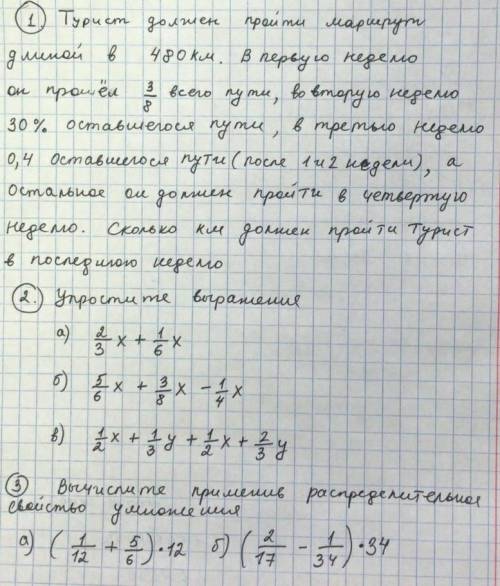 1 Турист должен пройти маршрут
длиной в 480 км. В первую неделю
он прошёл 3/8 всего пути, во вторую неделю
30% оставшегося пути, в третью неделю
0,4 оставшегося пути (после 1 и 2 недели), а
остальное он должен пройти в четвертую
неделю. Сколько км должен пройти турист
в последнюю неделю
2. Упростите выражения
а) 2/3 x + 1/6 x
б) 5/6 x + 3/8 x - 1/4 x
в) 1/2 x + 1/3 y + 1/2 x + 2/3 y
3 Вычислите применив распределительное
свойство умножения
а) (1/12 + 5/6) · 12 б) (2/17 - 1/34) · 34